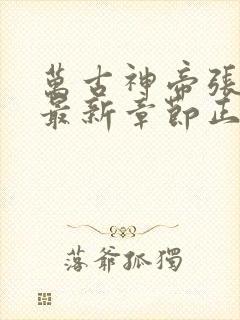 萬古神帝張
最新章節正
落爺孤獨